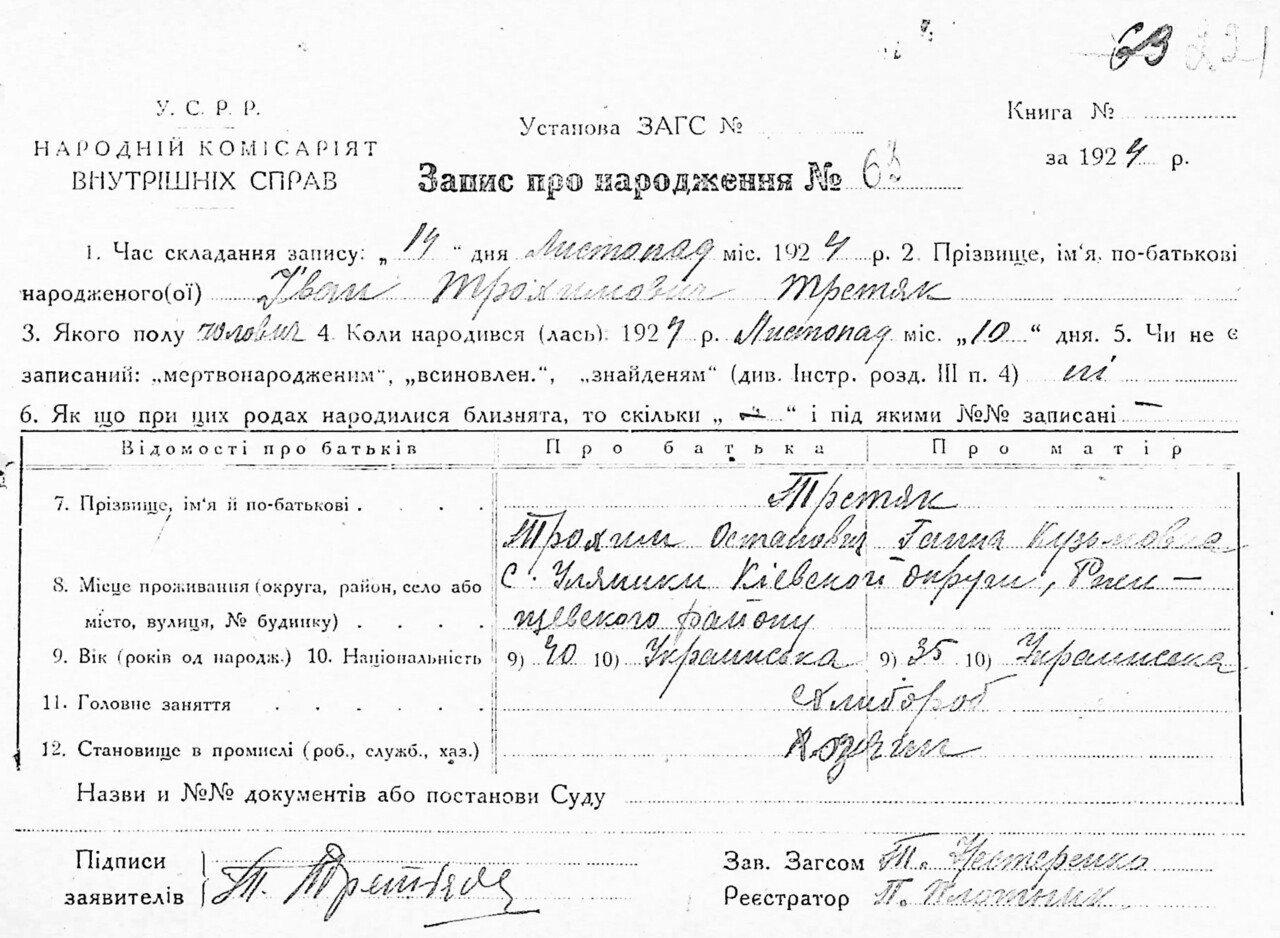 63 221
У. С. Р. Р.
НАРОДНІЙ КОМІСАРІЯТ
ВНУТРІШНІХ СПРАВ
Установа ЗАГС №
Книга №
за 1924 р.
Запис про народження № 63
1. Час складання запису: „ 14 “ дня Листопад міс. 1924 р. 2. Прізвище, ім'я, по-батькові
народженого(ої) Іван Трохимович Третяк
3. Якого полу чолович 4. Коли народився (лась): 1924 р. Листопад міс. „10“ дня. 5. Чи не є
записаний: „мертвонародженим“, „всиновлен.“, „знайденям“ (див. Інстр. розд. III п. 4) ні
6. Як що при цих родах народилися близнята, то скільки „ – “ і під якими №№ записані –
Відомості про батьків Про батька Про матір
7. Прізвище, ім'я й по-батькові . . . . Третяк
Трохим Остапович Ганна Кузьмовна
8. Місце проживання (округа, район, село або с. Уляники Кіевской округи, Ржи-
місто, вулиця, № будинку) . . . . щевского району
9. Вік (років од народж.) 10. Національність 9) 40 10) Украинська 9) 35 10) Украинська
11. Головне заняття . . . . . . Хлибороб
12. Становище в промислі (роб., служб., хаз.) Хозяин
Назви и №№ документів або постанови Суду
Підписи
заявителів Т. Третяк
Зав. Загсом Т. Нестеренко
Реєстратор П. Плотник